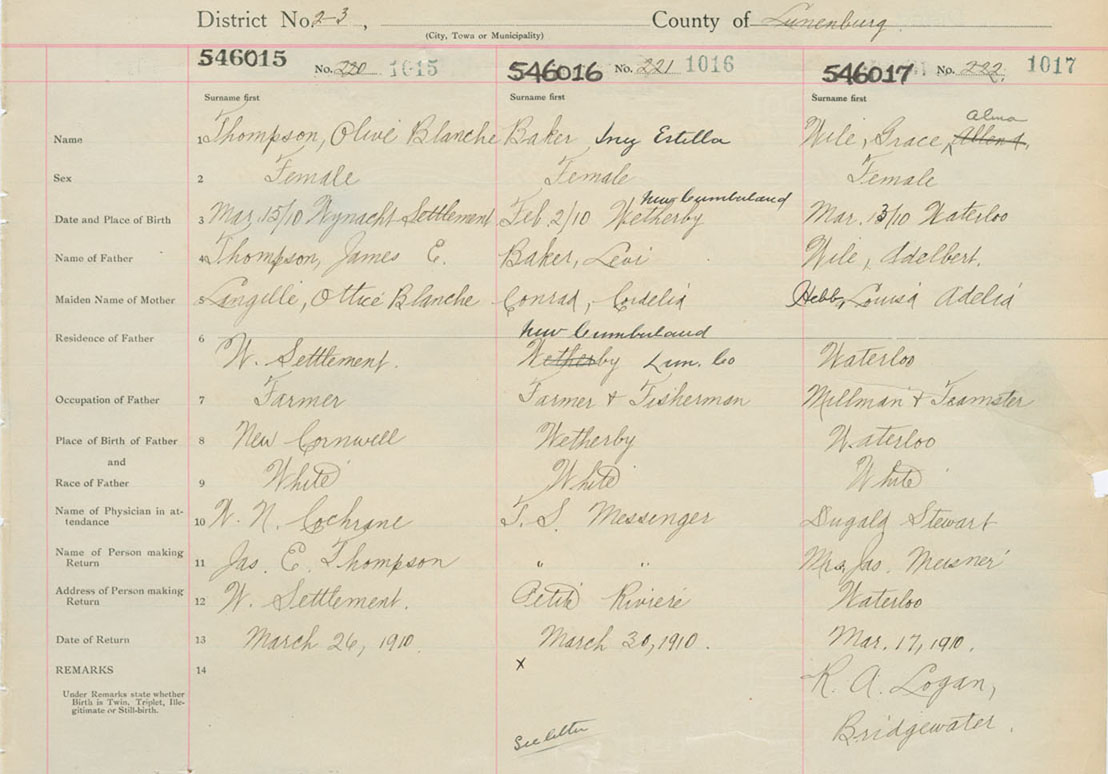 District No. 2-3, County of Lunenburg
(City, Town or Municipality)
546015 No. 220 1015 546016 No. 221 1016 546017 No. 222 1017
Surname first Surname first Surname first
Alma
Name 1 Thompson, Olive Blanche Baker Inez Estella Wile, Grace,
Sex 2 Female Female Female
New Cumberland
Date and Place of Birth 3 Mar. 15/10 Wynacht Settlement Feb. 2/10 Wetherby Mar. 13/10 Waterloo
Name of Father 4 Thompson, James E. Baker, Levi Wile, Adelbert.
Maiden Name of Mother 5 Langille, Ottie Blanche Conrad, Cordelia Hebb, Louisa Adelia
New Cumberland
Residence of Father 6 W. Settlement. Wetherby Lun. Co Waterloo
Occupation of Father 7 Farmer Farmer & Fisherman Millman & Teamster
Place of Birth of Father 8 New Cornwell Wetherby Waterloo
and
Race of Father 9 White White White
Name of Physician in at-
tendance 10 W. N. Cochrane T. S. Messenger Dugald Stewart
Name of Person making
Return 11 Jas. E. Thompson " " Mrs. Jas. Meisner
Address of Person making
Return 12 W. Settlement. Petite Riviere Waterloo
Date of Return 13 March 26, 1910. March 30, 1910. Mar. 17, 1910.
REMARKS 14 x R. A. Logan,
Under Remarks state whether
Birth is Twin, Triplet, Ille-
gitimate or Still-birth.
Bridgewater.
See letter